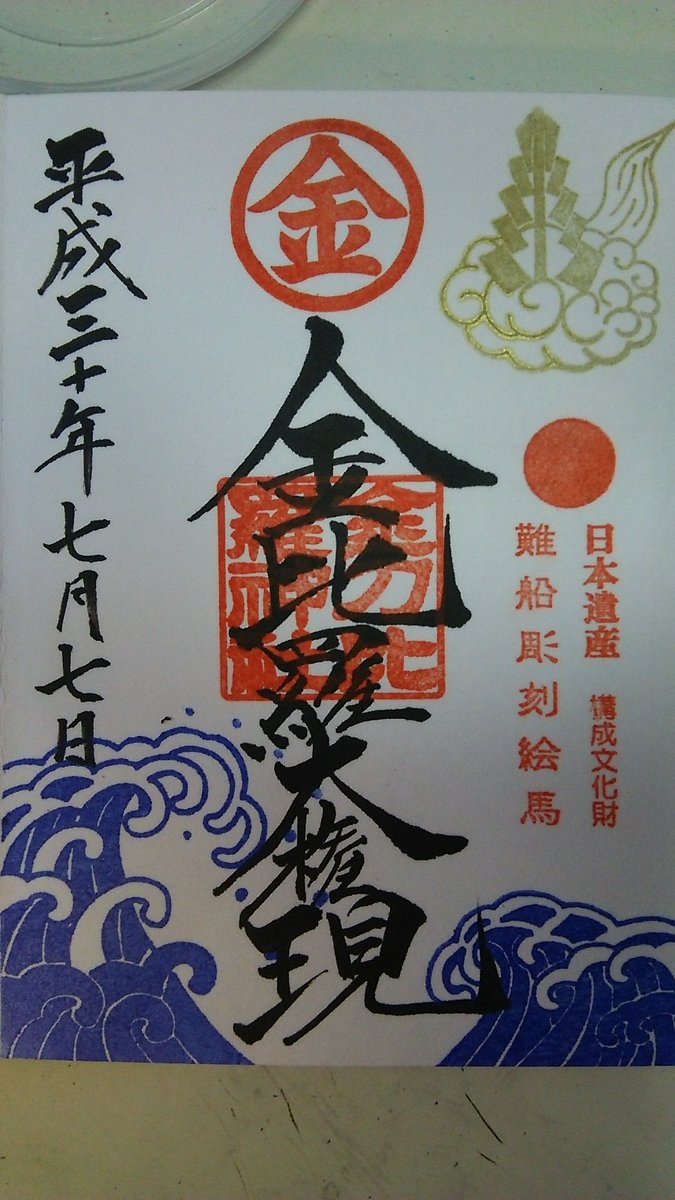 日本遺産 構成文化財
難船彫刻絵馬
金
金比羅大権現
金刀比
羅神社
平成三十年七月七日